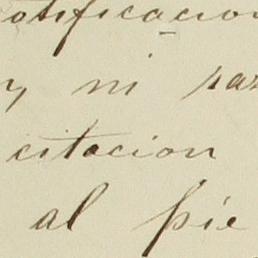 otificacion
y ni par
citacion
al pie